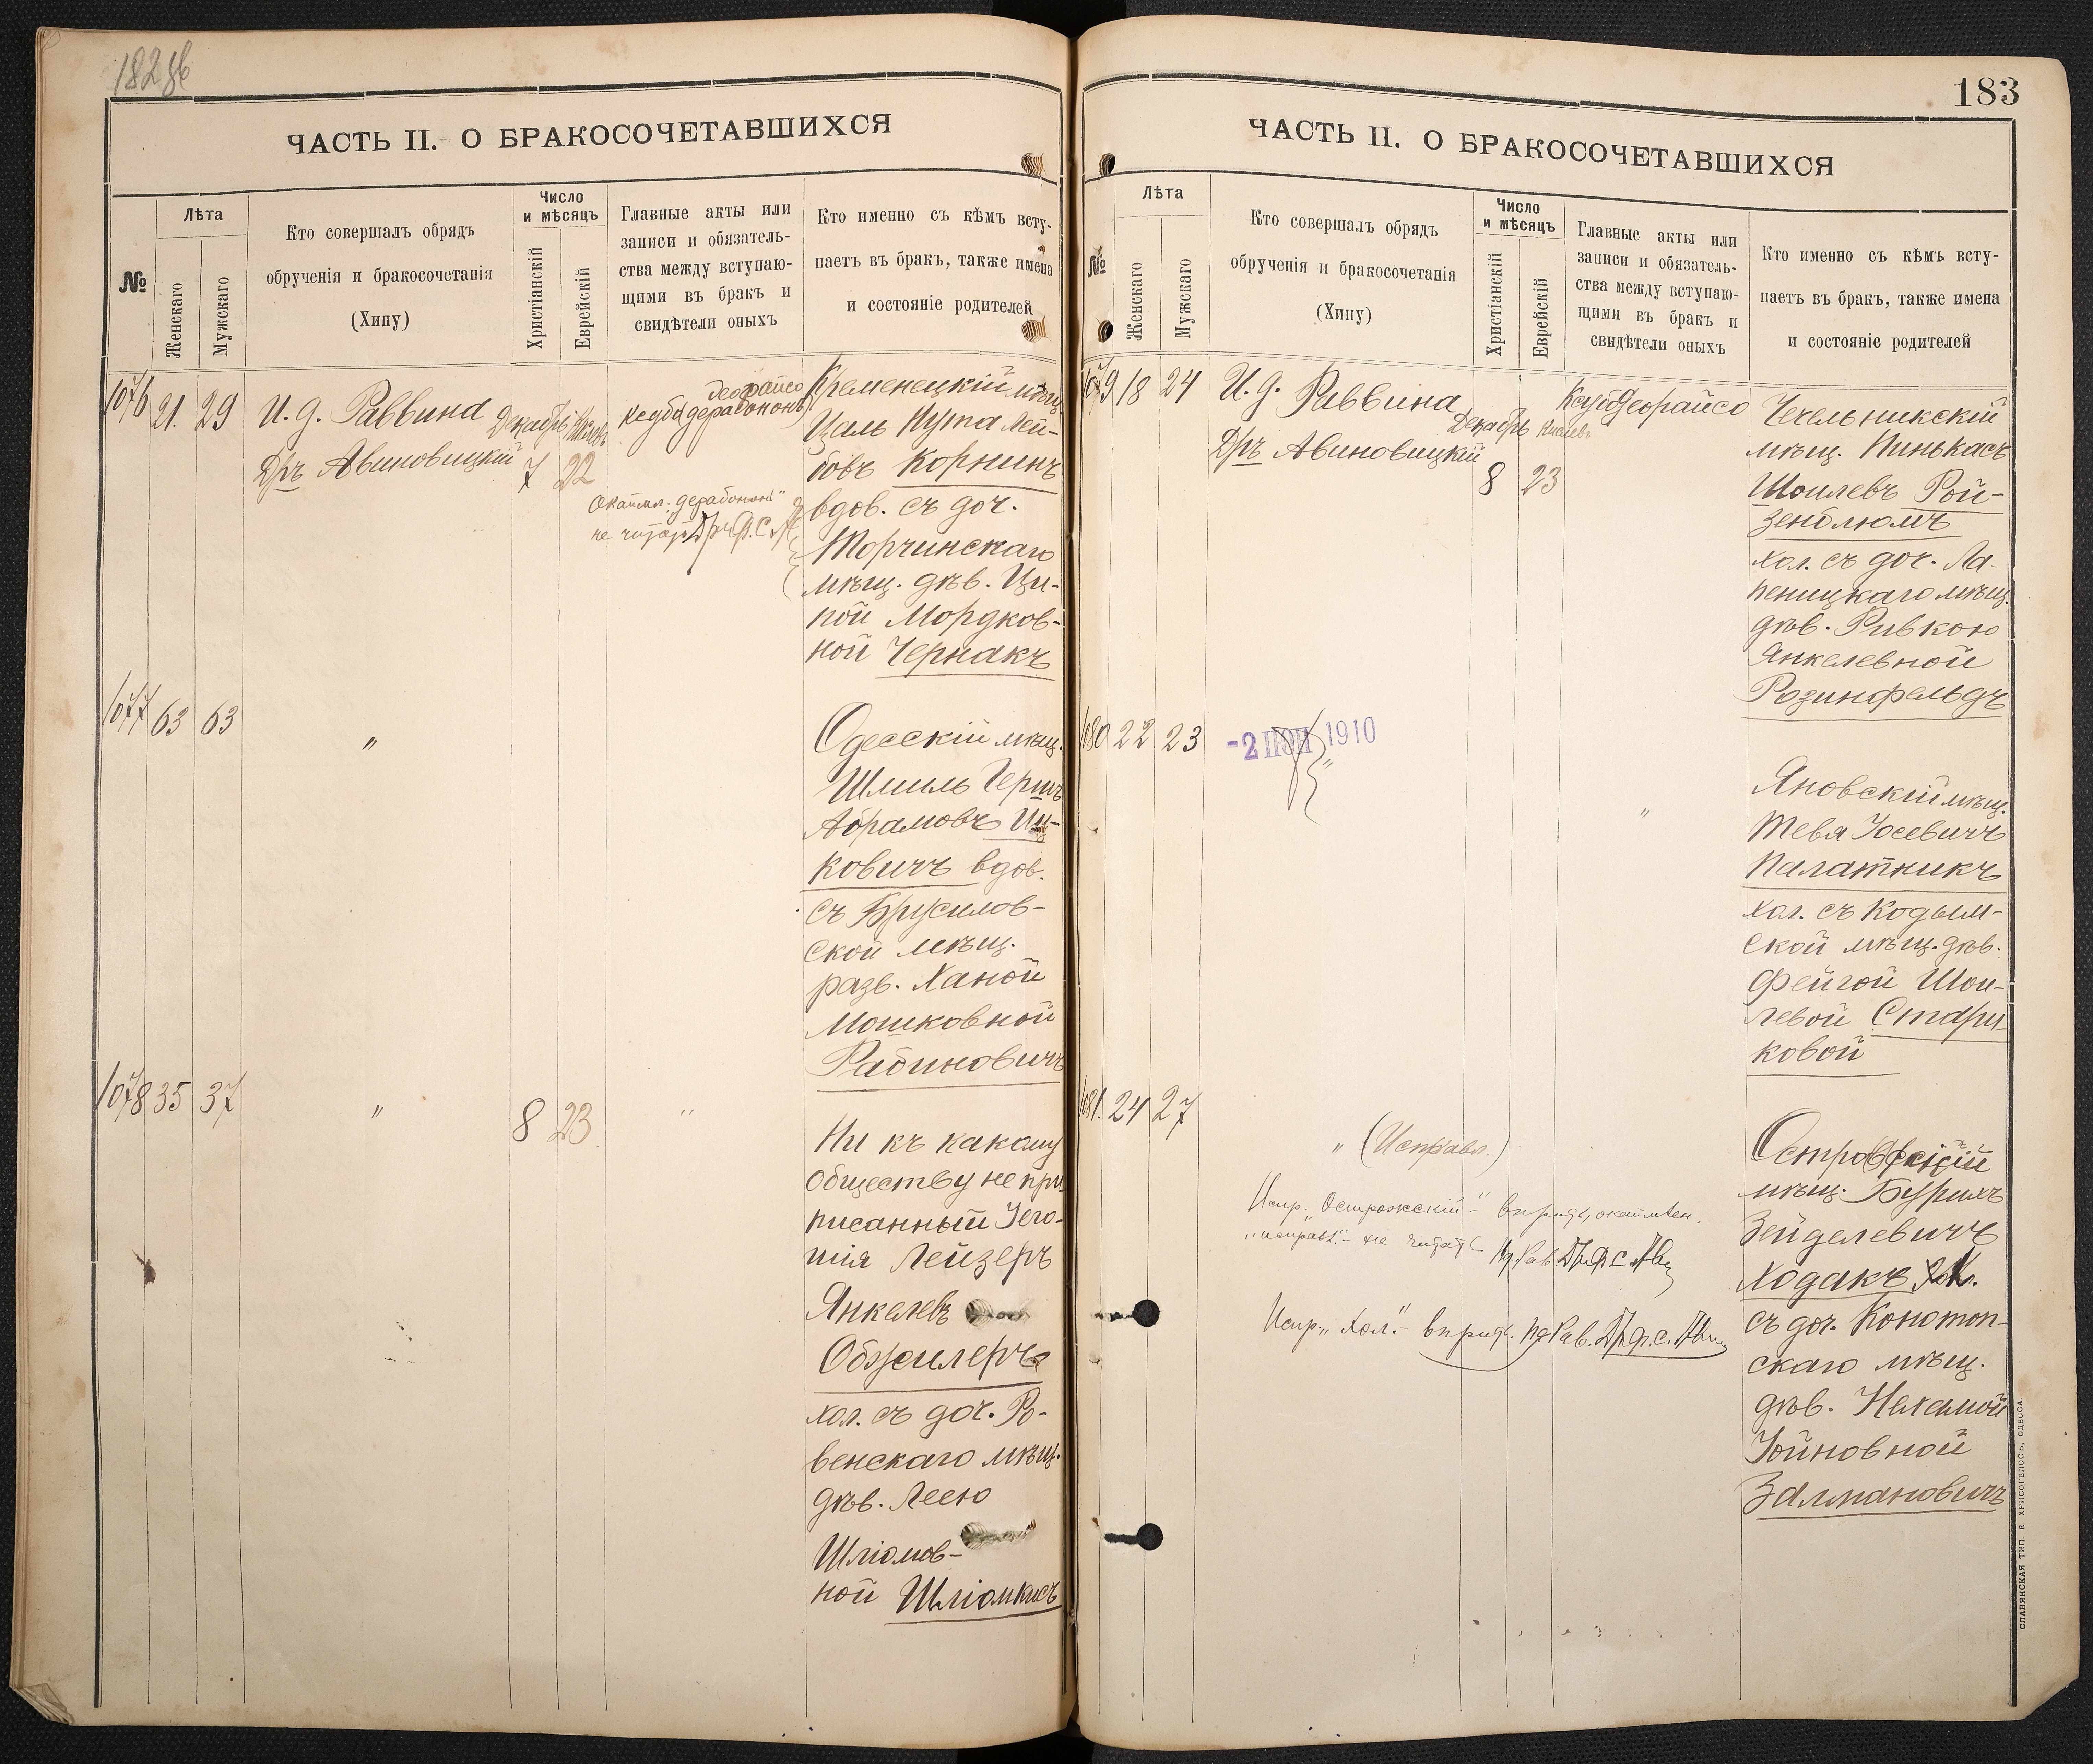 182 об
ЧАСТЬ II. О БРАКОСОЧЕТАВШИХСЯ
№
Лѣта
Женскаго
Мужскаго
Кто совершалъ обрядъ
обрученія и бракосочетанія
(Хипу)
Число
и мѣсяцъ
Христіанскій
Еврейскій
Главные акты или
записи и обязатель-
ства между вступаю-
щими въ бракъ и
свидѣтели оныхъ
Кто именно съ кѣмъ всту-
паетъ въ бракъ, также имена
и состояніе родителей
1076 21. 29 И. д. Раввина
Дръ Авиновицкій
Декабрь Кислевъ
7 22
деорайсо
Ксуба дерабононъ
Окаймл. "дерабононъ"
не читать Дръ Ф. С. Ав
Кременецкій мѣщ.
Цаль Нута Лей-
бовъ Корнинъ
вдов. съ доч.
Торчинскаго
мѣщ. дѣв. Ци-
пой Мордков-
ной Чернакъ
1077 63 63 "
Одесскій мѣщ.
Шмиль Гершъ
Абрамовъ Иц-
ковичъ вдов.
съ Брусилов-
ской мѣщ.
разв. Ханой
Мошковной
Рабиновичъ
1078 35 37 " 8 23 "
Ни къ какому
обществу не при-
писанный Іего-
шія Лейзеръ
Янкелевъ
Обжилеръ
хол. съ доч. Ро-
венскаго мѣщ.
дѣв. Леею
Шліомов-
ной Шліомкисъ
183
ЧАСТЬ II. О БРАКОСОЧЕТАВШИХСЯ
№
Лѣта
Женскаго
Мужскаго
Кто совершалъ обрядъ
обрученія и бракосочетанія
(Хипу)
Число
и мѣсяцъ
Христіанскій
Еврейскій
Главные акты или
записи и обязатель-
ства между вступаю-
щими въ бракъ и
свидѣтели оныхъ
Кто именно съ кѣмъ всту-
паетъ въ бракъ, также имена
и состояніе родителей
1079 18 24 И. д. Раввина
Дръ Авиновицкій
Декабрь Кислевъ
8 23
Ксуба Деорайсо
Чечельникскій
мѣщ. Пинькасъ
Шоилевъ Рой-
зенблюмъ
хол. съ доч. Ла-
пеницкаго мѣщ.
дѣв. Ривкою
Янкелевной
Розинфельдъ
1080 22 23 -2 1910
"
Яновскій мѣщ.
Тевя Іосевичъ
Палатникъ
хол. съ Кодым-
ской мѣщ. дѣв.
Фейгой Шои-
левой Стари-
ковой
1081. 24 27
" (Исправл.)
Испр. "Острожскій" - вѣрить, окаймлен.
"исправл." - не читать - Ид Рав Дръ Ф С Ав
Испр. "Хол." - вѣрить. Ид Рав. Дръ Ф. С. Ав
Острожскій
мѣщ. Бурихъ
Зейделевичъ
Ходакъ Хол.
съ доч. Конотоп-
скаго мѣщ.
дѣв. Нехамой
Іойновной
Залмановичъ
СЛАВЯНСКАЯ ТИП. Е. ХРИСОГЕЛОСЪ, ОДЕССА